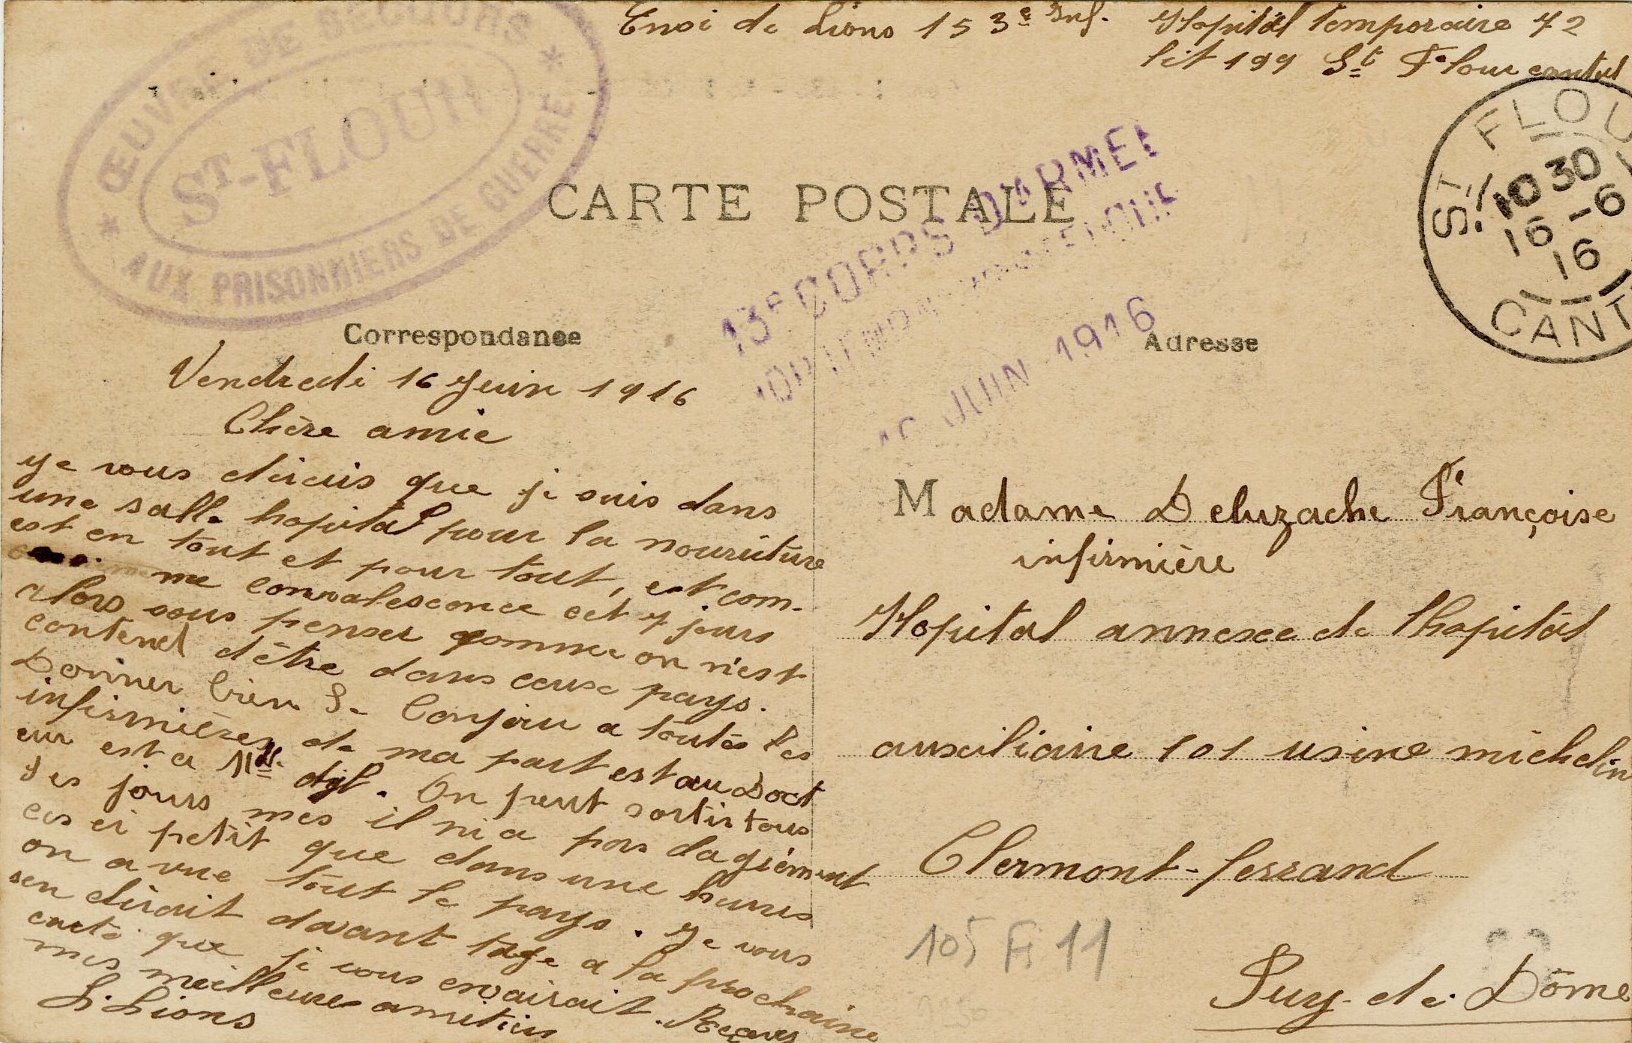 Envoi de Lions 153e Inf. Hopital temporaire 72
lit 199 St Flour cantal
ŒUVRE DE SECOURS
ST-FLOUR
AUX PRISONNIERS DE GUERRE
ST FLOU
10 30
16 - 6
16
CANT
CARTE POSTALE
13e CORPS D'ARMEE
16 JUIN 1916
Correspondance
Adresse
Vendredi 16 Juin 1916
Chère amie
Je vous dirais que je suis dans
une salle hopital pour la nouriture
est en tout et pour tout, est com-
me convalescence cet 7 jours
alors vous penser comme on n'est
contend d'être dans ceux pays.
Donner bien Le Bonjour a toutes les
infirmières de ma part est au Doct
eur est a dgl. On peut sortir tous
les jours mes il ni a pas dagrément
ces si petit que dans une heures
on a vue tout le pays. Je vous
en dirait davant tage a la prochaine
carte que je vous envairait. Reçevez
mes meilleures amitiés
L. Lions
Madame Deluzache Françoise
infirmière
Hopital annexe de l'hopital
auxiliaire 101 usine michelin
Clermont-ferrand
Puy-de-Dôme
105 Fi 11